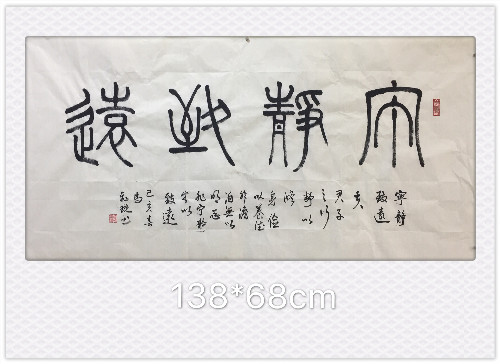 寧靜致遠
寧靜
致遠
夫
君子
之行
靜以
修
身儉
以養德
非澹
泊無以
明志
非宁静
無以
致遠
己亥春